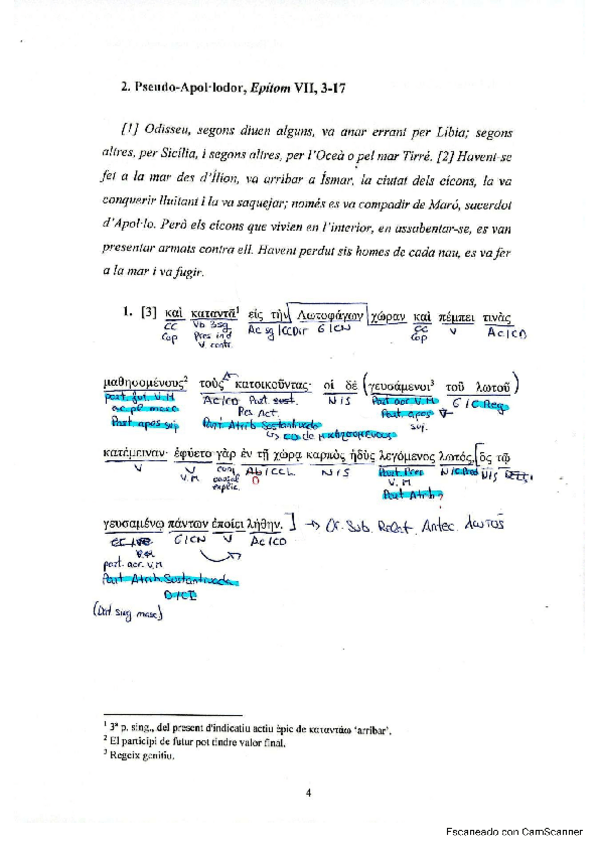 2. Pseudo-Apol·lodor, Epítom VII, 3-17
[1] Odisseu, segons diuen alguns, va anar errant per Líbia; segons
altres, per Sicília, i segons altres, per l'Oceà o pel mar Tirré. [2] Havent-se
fet a la mar des d'Ílion, va arribar a Ísmar, la ciutat dels cícons, la va
conquerir lluitant i la va saquejar; només es va compadir de Maró, sacerdot
d'Apol·lo. Però els cícons que vivien en l'interior, en assabentar-se, es van
presentar armats contra ell. Havent perdut sis homes de cada nau, es va fer
a la mar i va fugir.
1. [3] καὶ καταντᾷ¹ εἰς τὴν Λωτοφάγων χώραν καὶ πέμπει τινὰς
CC Vb 3sg Ac sg/CCDir G/CN CC V Ac/CD
Cop Pres ind Cop
V contr.
μαθησομένους² τοὺς κατοικοῦντας· οἱ δὲ (γευσάμενοι³ τοῦ λωτοῦ)
part. fut. V.M Ac/CD Part. sust. N/S Part aor V.M G/C Reg
ac pl masc Pres Act. Part apos V
Part apos suj Part Atrib Sustantivado suj.
CD de μαθησομένους
κατέμειναν· ἐφύετο γὰρ ἐν τῇ χώρᾳ καρπὸς ἡδὺς λεγόμενος λωτός, [ὃς τῷ
V V conj. Ab/CCL N/S Part Pres N/C Pred N/S
V.M causal D V.M
explic. Part Atrib
γευσαμένῳ πάντων ἐποίει λήθην.] → Or. Sub. Relat. Antec. λωτός
G/CN V Ac/CD
V.M
part. aor. V.M
Part Atrib Sustantivado
D/CI
(Dat sing masc)
¹ 3ª p. sing., del present d'indicatiu actiu èpic de καταντάω 'arribar'.
² El participi de futur pot tindre valor final.
³ Regeix genitiu.
4
Escaneado con CamScanner